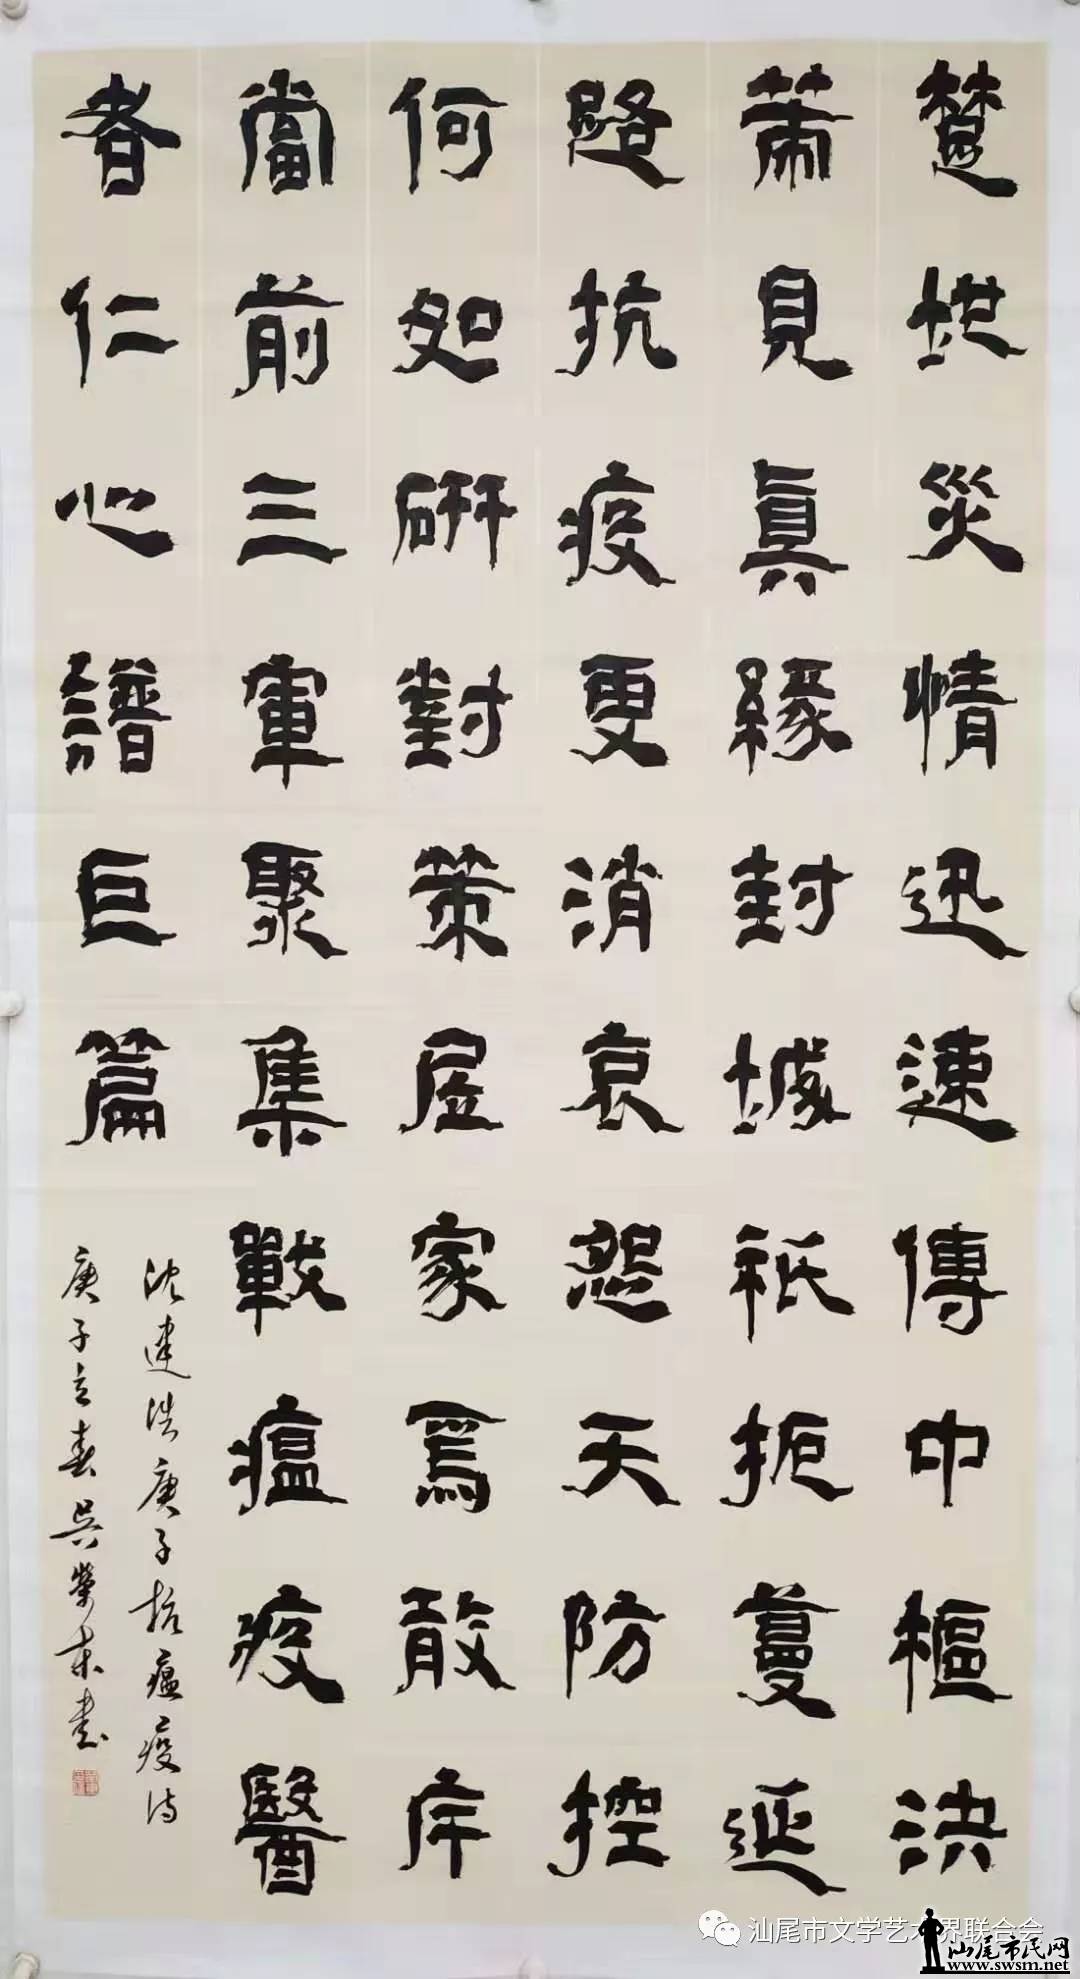 楚地災情迅速傳中樞決
策見真緣封城祇扼蔓延
路抗疫更消哀怨天防控
何如研對策居家焉敢斥
當前三軍聚集戰瘟疫醫
者仁心譜巨篇
沈建浩庚子抗瘟疫詩
庚子立春吳榮東書
汕尾市文学艺术界联合会
汕尾市民网
www.swsm.net